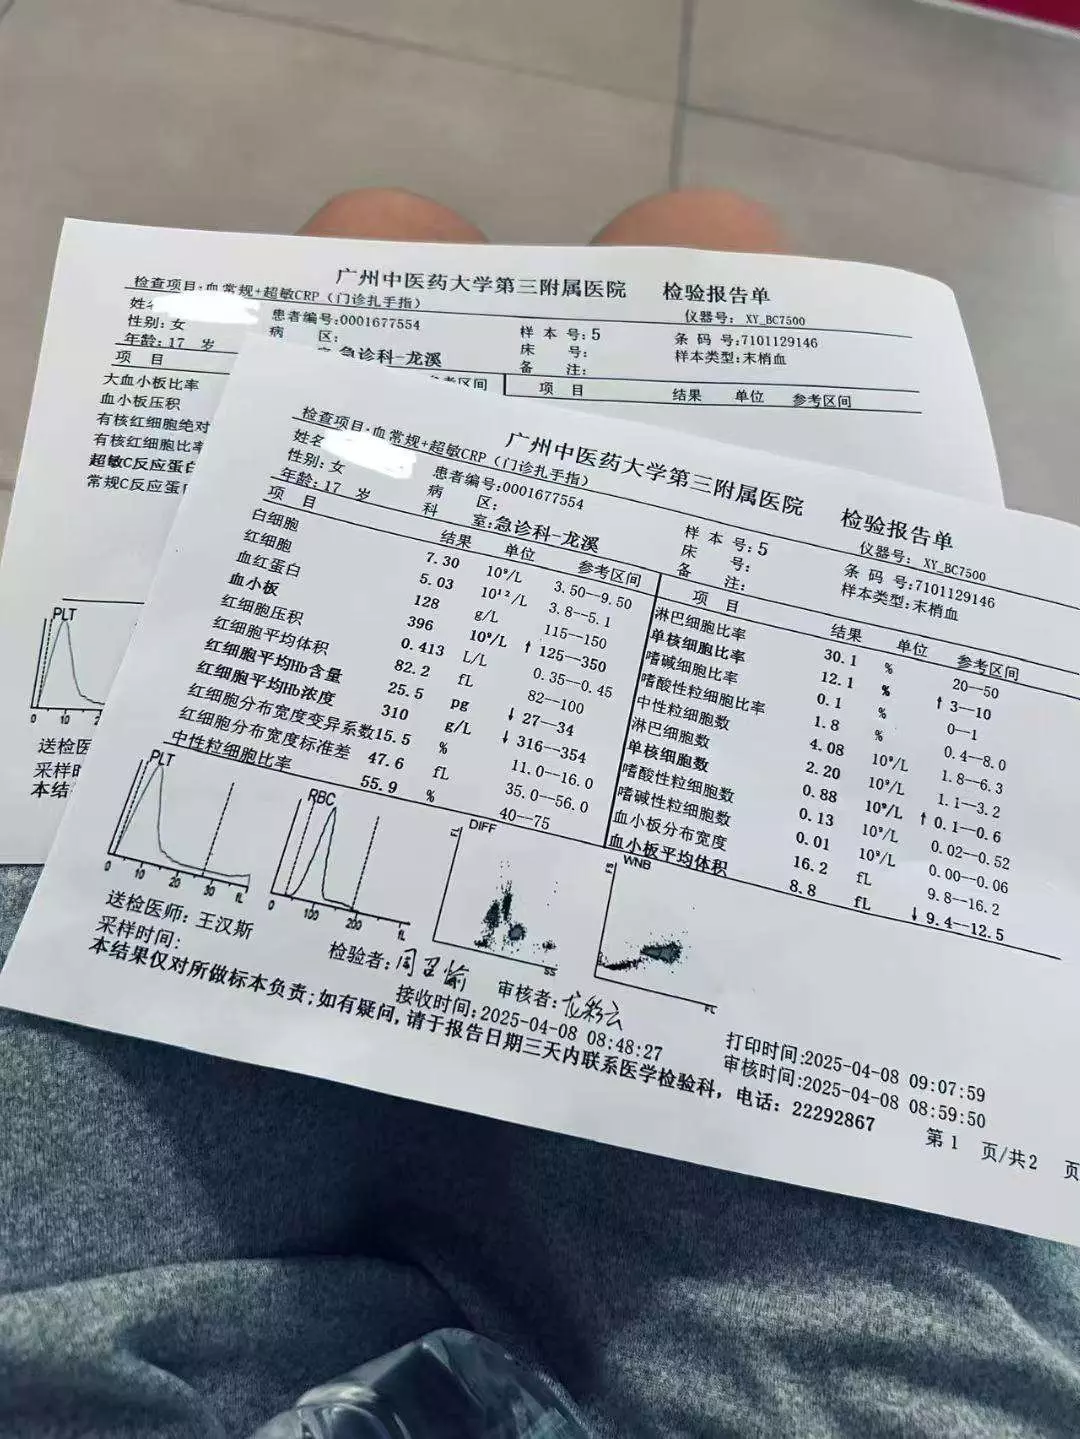 广州中医药大学第三附属医院 检验报告单
检查项目:血常规+超敏CRP(门诊扎手指)
仪器号: XY_BC7500
患者编号:0001677554
样 本 号:5
条 码 号:7101129146
性别:女
病 区:
床 号:
样本类型:末梢血
年龄:17 岁
急诊科-龙溪
备 注:
项 目
参考区间
项 目 结果 单位 参考区间
大血小板比率
血小板压积
有核红细胞绝对
有核红细胞比率
超敏C反应蛋白
常规C反应蛋白
PLT
0 10
送检医
采样时
本结
广州中医药大学第三附属医院 检验报告单
检查项目:血常规+超敏CRP(门诊扎手指)
仪器号: XY_BC7500
姓名
患者编号:0001677554
样 本 号:5
条 码 号:7101129146
性别:女
病 区:
床 号:
样本类型:末梢血
年龄:17 岁
科 室:急诊科-龙溪
备 注:
项 目 结果 单位 参考区间
白细胞 7.30 10⁹/L 3.50--9.50
红细胞 5.03 10¹²/L 3.8--5.1
血红蛋白 128 g/L 115--150
血小板 396 10⁹/L ↑ 125--350
红细胞压积 0.413 L/L 0.35--0.45
红细胞平均体积 82.2 fL 82--100
红细胞平均Hb含量 25.5 pg ↓ 27--34
红细胞平均Hb浓度 310 g/L ↓ 316--354
红细胞分布宽度变异系数 15.5 % 11.0--16.0
红细胞分布宽度标准差 47.6 fL 35.0--56.0
中性粒细胞比率 55.9 % 40--75
项 目 结果 单位 参考区间
淋巴细胞比率 30.1 % 20--50
单核细胞比率 12.1 % ↑ 3--10
嗜碱细胞比率 0.1 % 0--1
嗜酸性粒细胞比率 1.8 % 0.4--8.0
中性粒细胞数 4.08 10⁹/L 1.8--6.3
淋巴细胞数 2.20 10⁹/L 1.1--3.2
单核细胞数 0.88 10⁹/L ↑ 0.1--0.6
嗜酸性粒细胞数 0.13 10⁹/L 0.02--0.52
嗜碱性粒细胞数 0.01 10⁹/L 0.00--0.06
血小板分布宽度 16.2 fL 9.8--16.2
血小板平均体积 8.8 fL ↓ 9.4--12.5
PLT
0 10 20 30 fL
RBC
0 100 200 fL
DIFF
FL
SS
WNB
FS
FL
送检医师: 王汉斯
检验者:
审核者: 龙彩云
打印时间:2025-04-08 09:07:59
采样时间:
接收时间:2025-04-08 08:48:27
审核时间:2025-04-08 08:59:50
本结果仅对所做标本负责;如有疑问,请于报告日期三天内联系医学检验科, 电话: 22292867
第 1 页/共2 页